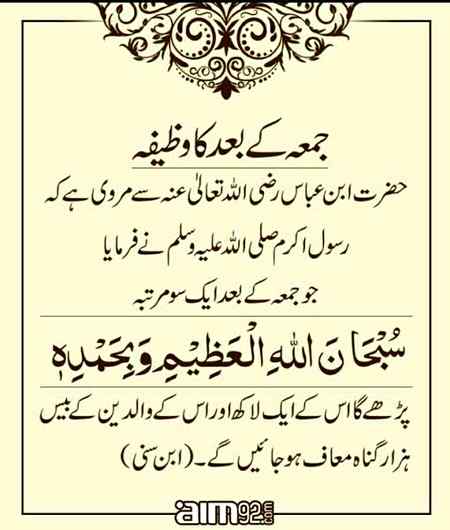 جمعہ کے بعد کا وظیفہ
حضرت ابن عباس رضی اللہ تعالیٰ عنہ سے مروی ہے کہ
رسول اکرم صلی اللہ علیہ وسلم نے فرمایا
جو جمعہ کے بعد ایک سو مرتبہ
سُبْحَانَ اللهِ الْعَظِيْمِ وَبِحَمْدِهٖ
پڑھے گا اس کے ایک لاکھ اور اس کے والدین کے بیس
ہزار گناہ معاف ہو جائیں گے۔ (ابن سنی)
aim92.com